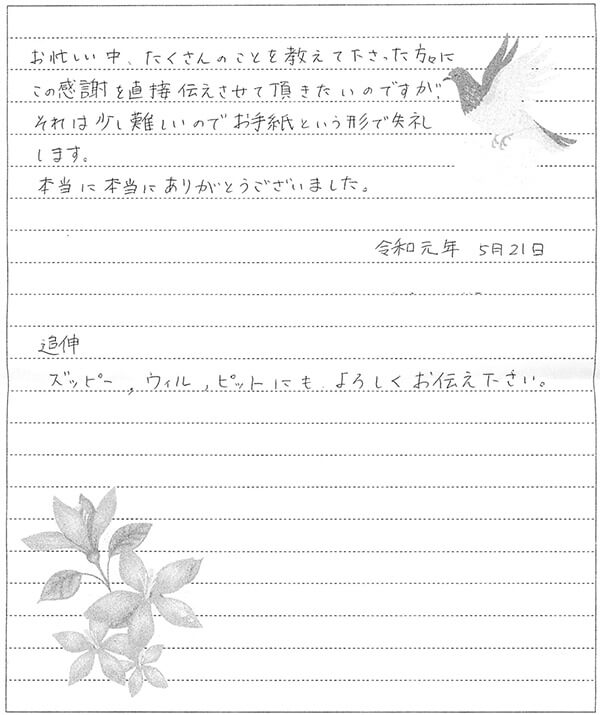 お忙しい中、たくさんのことを教えて下さった方々に
この感謝を直接伝えさせて頂きたいのですが、
それは少し難しいのでお手紙という形で失礼
します。
本当に本当にありがとうございました。
令和元年 5月21日
追伸
ズッピー，ウィル，ピットにも よろしくお伝え下さい。